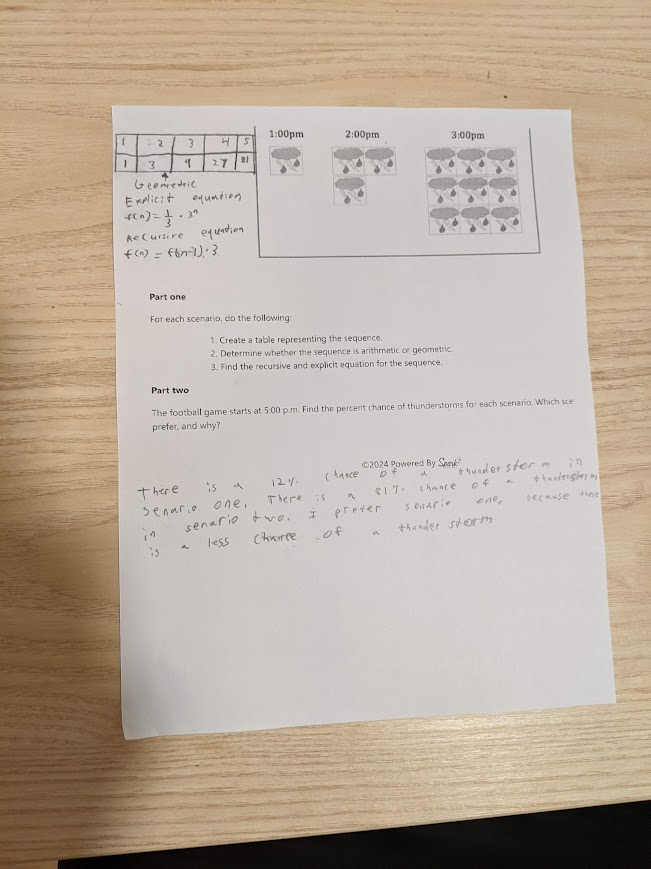 1:00pm 2:00pm 3:00pm
1 2 3 4 5
1 3 9 27 81
Geometric
Explicit equation
f(n) = 1/3 · 3ⁿ
Recursive equation
f(n) = f(n-1) · 3
Part one
For each scenario, do the following:
1. Create a table representing the sequence.
2. Determine whether the sequence is arithmetic or geometric.
3. Find the recursive and explicit equation for the sequence.
Part two
The football game starts at 5:00 p.m. Find the percent chance of thunderstorms for each scenario. Which sce
prefer, and why?
©2024 Powered By
There is a 12% chance of a thunder storm in
senario one. There is a 81% chance of a thunderstorm
in senario two. I prefer senario one, because there
is a less chance of a thunder storm